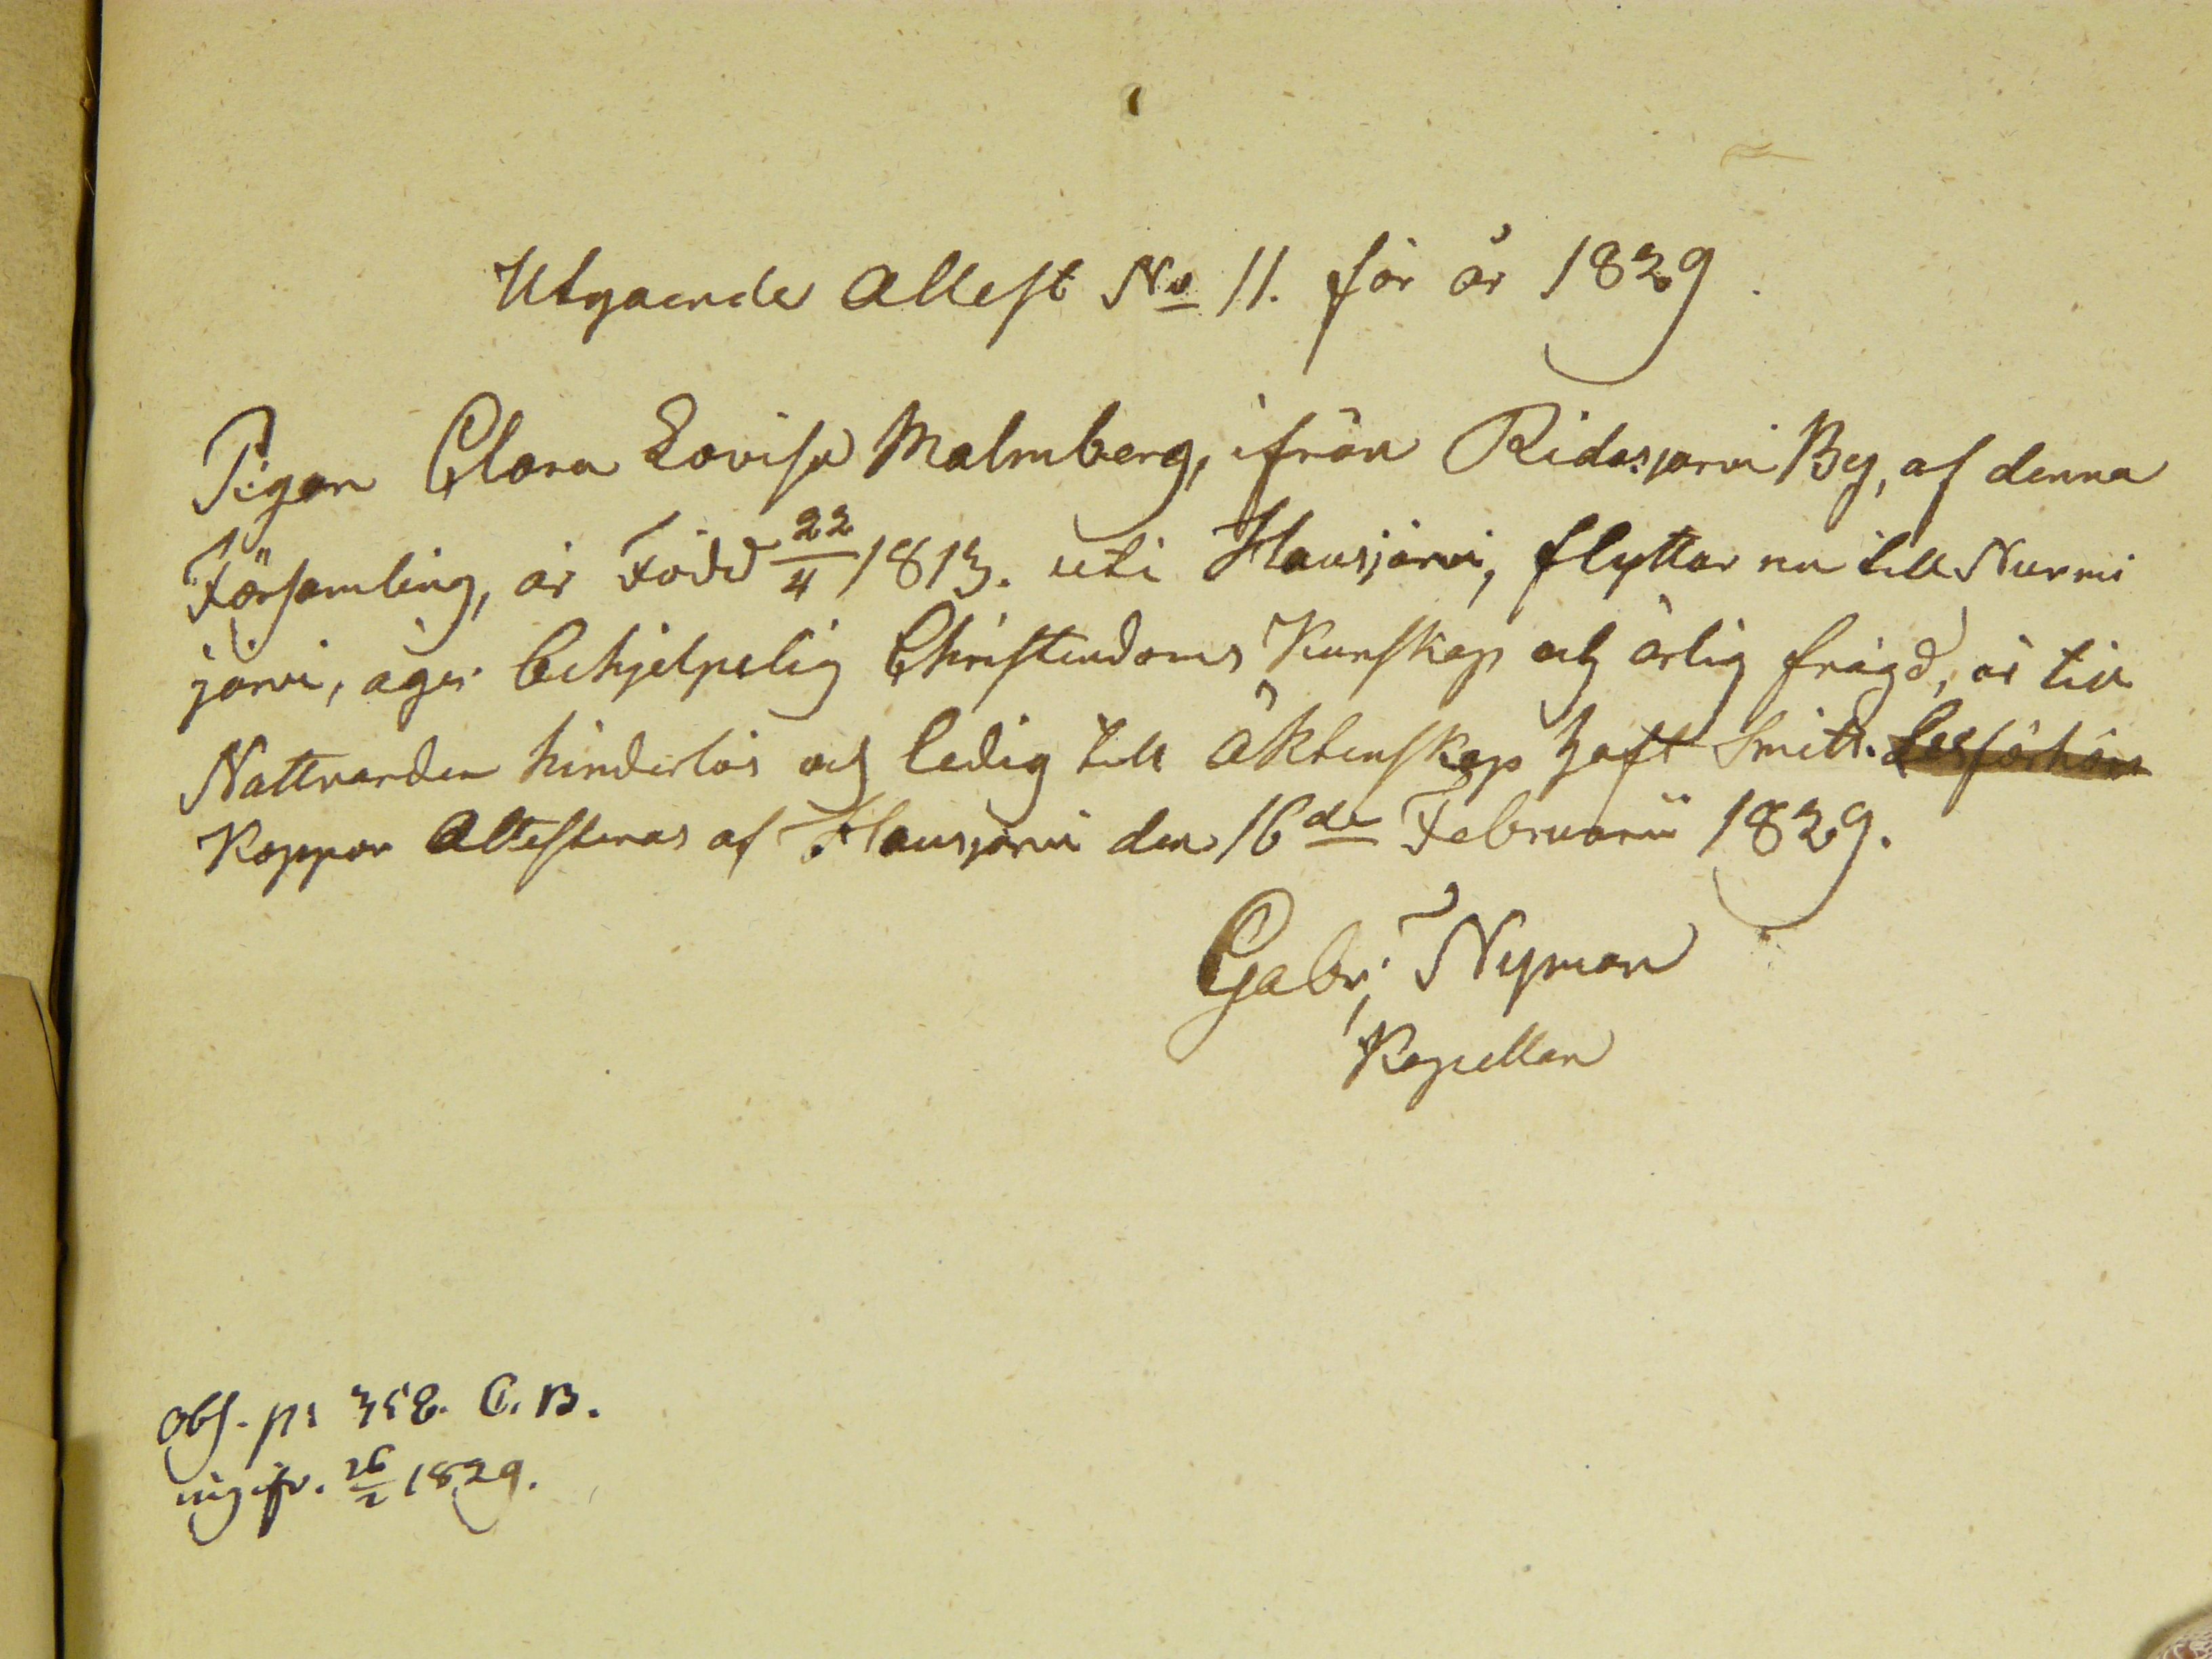 Utgaende Attest No 11. för år 1829.
Pigan Clara Lovisa Malmberg, ifrån Ridasjärvi By, af denna
Församling, är Född 22/4 1813. uti Hausjärvi, flyttar nu till Nurmi
järvi, äger behjelpelig Christendoms Kunskap och ärlig frägd, är till
Nattvarden hinderlös och ledig till Äktenskap haft Smitt. Lesförhör
Koppor Attesteras af Hausjärvi den 16de Februarii 1829.
Gabr; Nyman
Kapellan
Obs. p: 358. C. B.
ingifv. 26/2 1829.